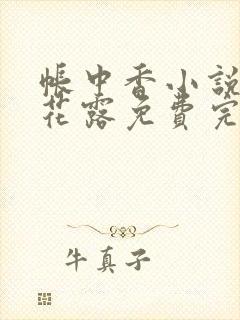 帳中香小說
花露免費完
牛真子